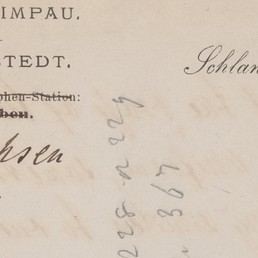 IMPAU.
STEDT.
Schlan
ohen-Station:
ben.
hsen
228-229
367